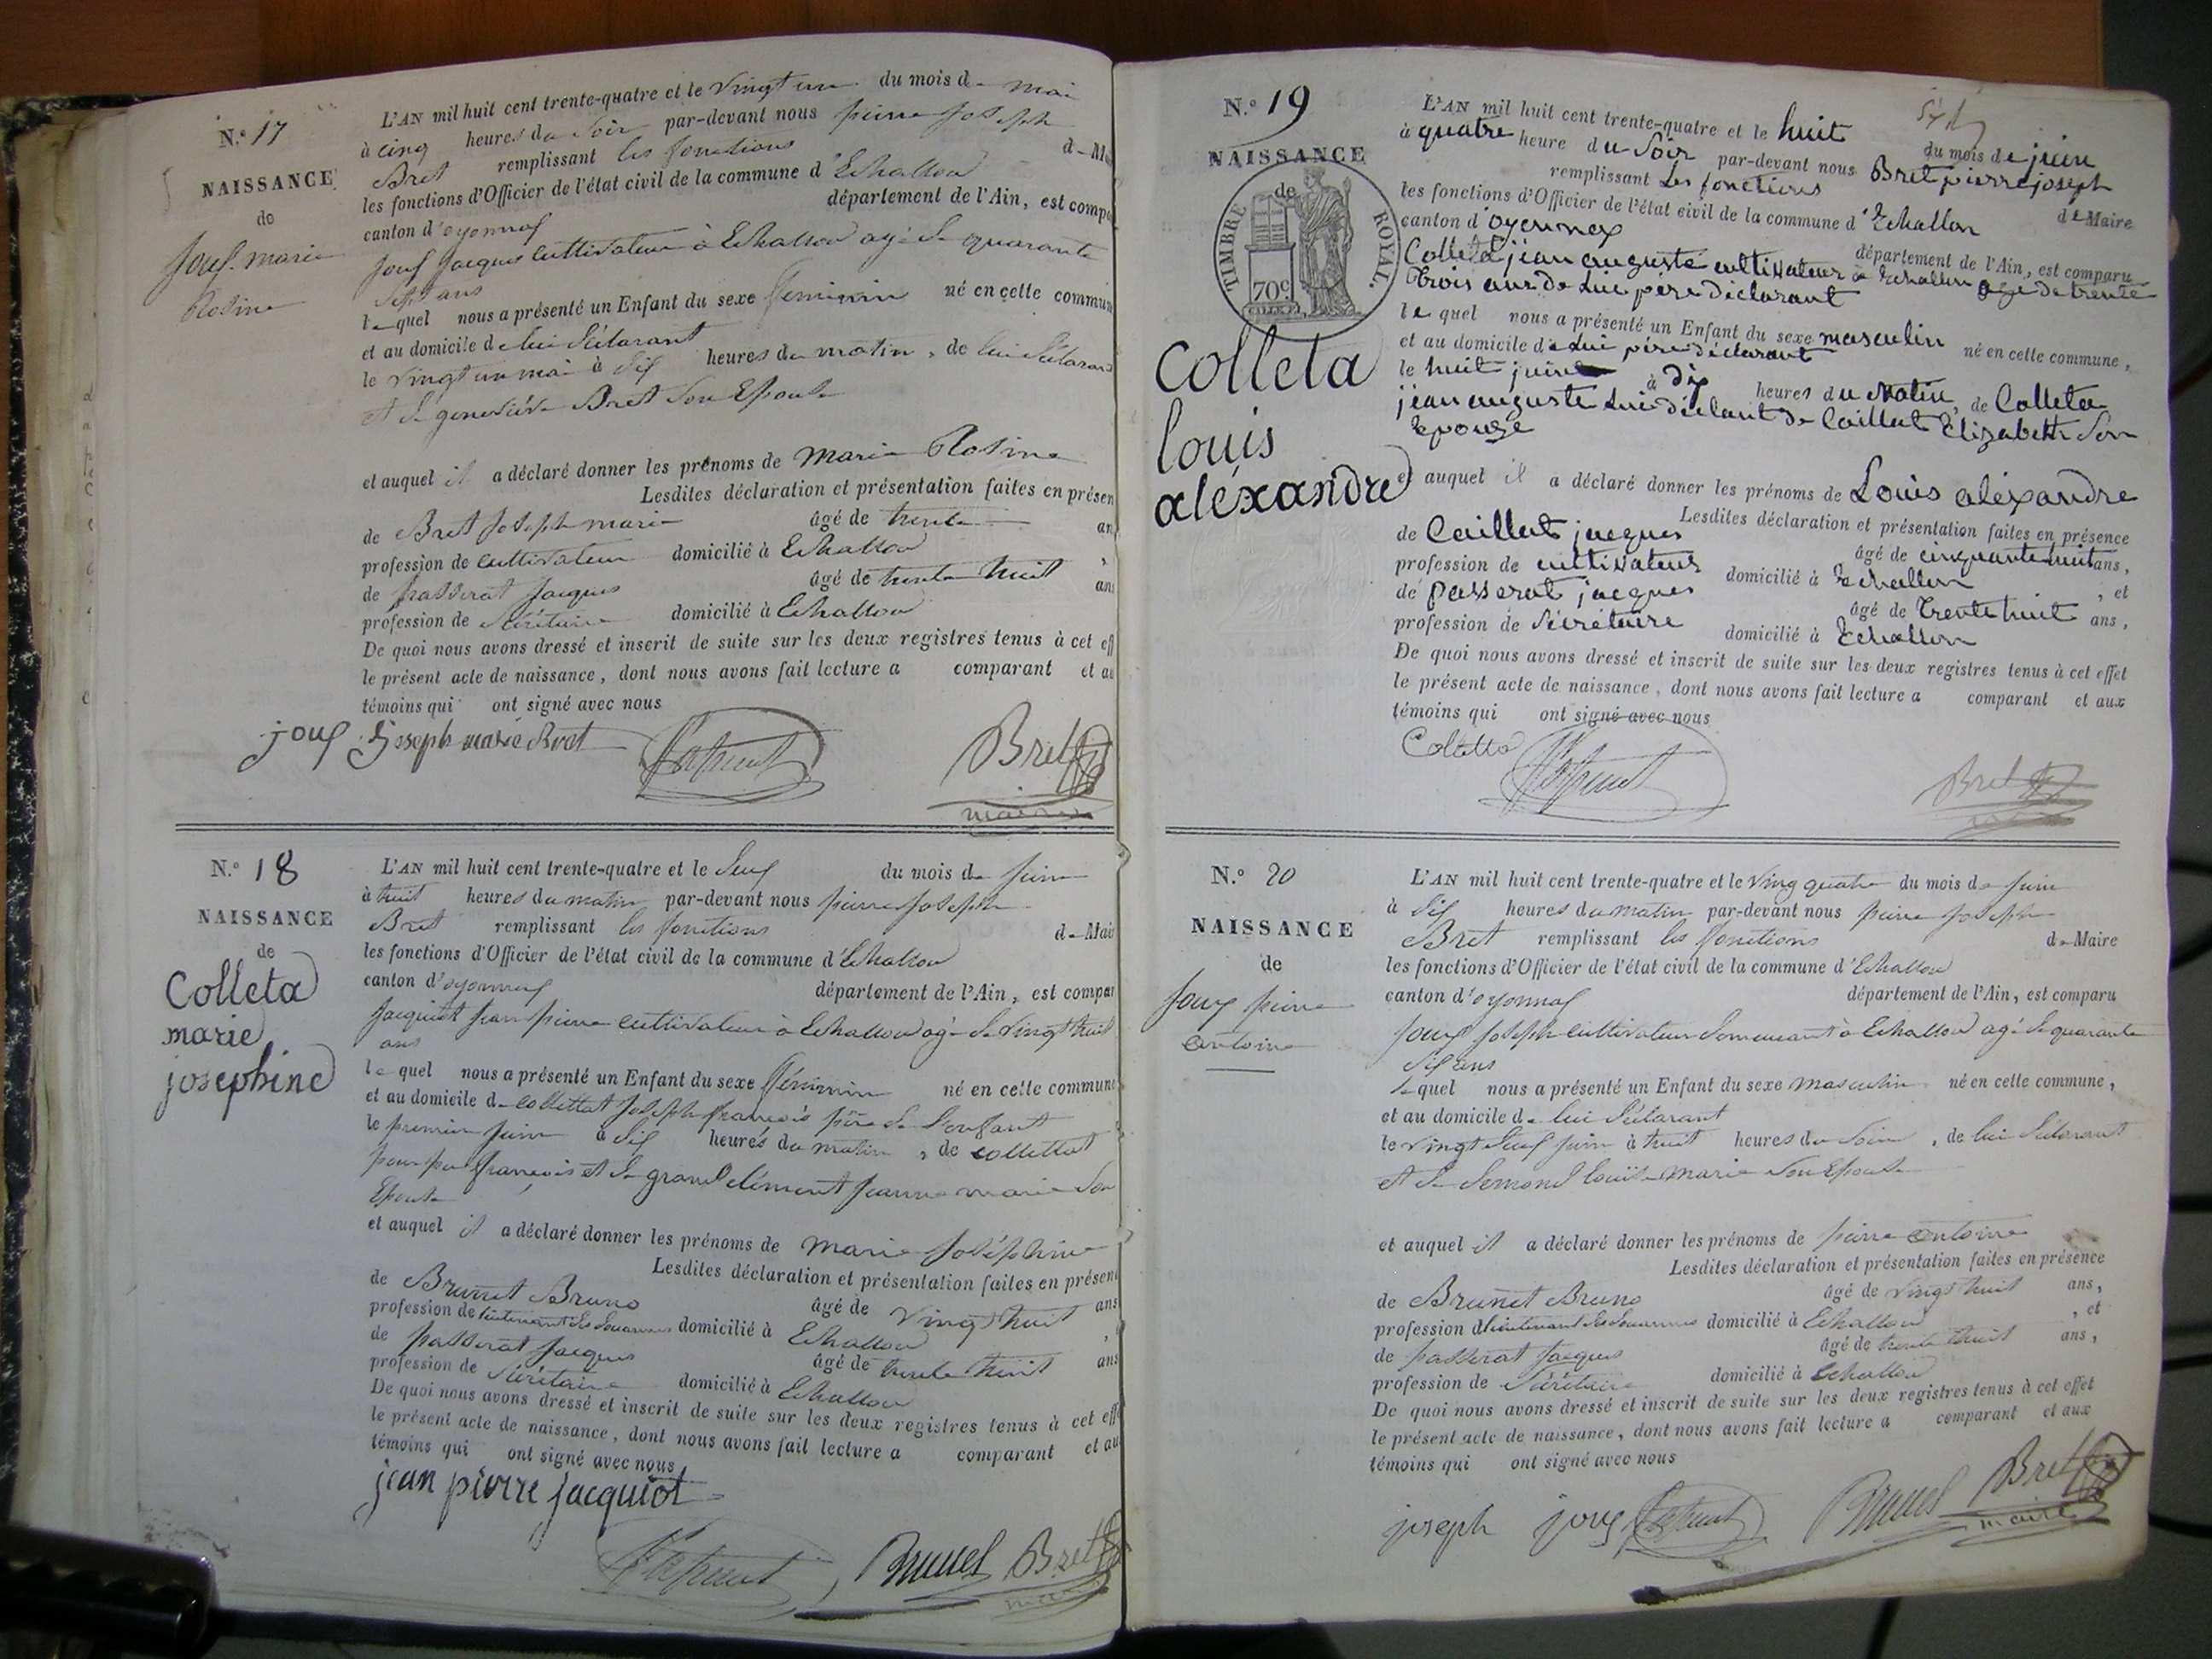 N.° 17
NAISSANCE
de
Joux marie
Rosine
L'AN mil huit cent trente-quatre et le vingt un du mois de mai
à cinq heures du soir par-devant nous pierre joseph
Bret remplissant les fonctions de Mai
les fonctions d'Officier de l'état civil de la commune d'Echallon
canton d'oyonnax département de l'Ain, est compa
Joux Jacques cultivateur à Echallon agé de quarante
sept ans
lequel nous a présenté un Enfant du sexe féminin né en cette commun
et au domicile de lui déclarant
le vingt un mai à dix heures du matin, de lui déclarant
et de geneviève Bret son Epouse
et auquel il a déclaré donner les prénoms de marie Rosine
Lesdites déclaration et présentation faites en présen
de Bret Joseph marie âgé de trente an
profession de cultivateur domicilié à Echallon ,
de passerat Jacques âgé de trente huit ans
profession de sécrétaire domicilié à Echallon
De quoi nous avons dressé et inscrit de suite sur les deux registres tenus à cet eff
le présent acte de naissance, dont nous avons fait lecture a comparant et au
témoins qui ont signé avec nous
joux joseph marie Bret Passerat Bret
maire
N.° 18
NAISSANCE
de
Colleta
marie
josephine
L'AN mil huit cent trente-quatre et le deux du mois de juin
à huit heures du matin par-devant nous pierre joseph
Bret remplissant les fonctions de Mair
les fonctions d'Officier de l'état civil de la commune d'Echallon
canton d'oyonnax département de l'Ain, est compar
Jacquiot jean pierre cultivateur à Echallon agé de vingt huit
ans
lequel nous a présenté un Enfant du sexe féminin né en cette commune
et au domicile de collettat joseph françois père de l'enfant
le premier juin à dix heures du matin, de collettat
françois et de grand clément jeanne marie son
Epouse
et auquel il a déclaré donner les prénoms de marie joséphine
Lesdites déclaration et présentation faites en présen
de Brunet Bruno âgé de vingt huit ans
profession de lieutenant des douannes domicilié à Echallon ,
de passerat jacques âgé de trente huit ans
profession de sécrétaire domicilié à Echallon
De quoi nous avons dressé et inscrit de suite sur les deux registres tenus à cet eff
le présent acte de naissance, dont nous avons fait lecture a comparant et au
témoins qui ont signé avec nous
jean pierre jacquiot
Passerat Brunet Bret
maire
N.° 19
NAISSANCE
de
TIMBRE ROYAL.
70c
Colleta
louis
aléxandre
L'AN mil huit cent trente-quatre et le huit du mois de juin
à quatre heure du soir par-devant nous Bret pierre joseph
remplissant les fonctions de Maire
les fonctions d'Officier de l'état civil de la commune d'Echallon
canton d'oyonnax département de l'Ain, est comparu
Colleta jean auguste cultivateur à Echallon age de trente
trois ans de lui père déclarant
lequel nous a présenté un Enfant du sexe masculin né en cette commune,
et au domicile de lui père déclarant
le huit juin à dix heures du Matin, de Colleta
jean auguste lui déclant de Caillat Elizabeth Son
Epouze
et auquel il a déclaré donner les prénoms de Louis aléxandre
Lesdites déclaration et présentation faites en présence
de Caillat jacques âgé de cinquante huit ans,
profession de cultivateur domicilié à Echallon , et
de passerat jacques âgé de trente huit ans,
profession de Sécrétaire domicilié à Echallon
De quoi nous avons dressé et inscrit de suite sur les deux registres tenus à cet effet
le présent acte de naissance, dont nous avons fait lecture a comparant et aux
témoins qui ont signé avec nous
Colletta Passerat Bret
N.° 20
NAISSANCE
de
Joux pierre
antoine
L'AN mil huit cent trente-quatre et le ving quatre du mois de juin
à dix heures du matin par-devant nous pierre joseph
Bret remplissant les fonctions de Maire
les fonctions d'Officier de l'état civil de la commune d'Echallon
canton d'oyonnax département de l'Ain, est comparu
Joux joseph cultivateur demeurant à Echallon agé de quarante
six ans
lequel nous a présenté un Enfant du sexe masculin né en cette commune,
et au domicile de lui déclarant
le vingt deux juin à huit heures du soir, de lui déclarant
et de Semond louise marie son Epouse
et auquel il a déclaré donner les prénoms de pierre antoine
Lesdites déclaration et présentation faites en présence
de Brunet Bruno âgé de vingt huit ans,
profession de lieutenant des douannes domicilié à Echallon , et
de passerat Jacques âgé de trente huit ans,
profession de Sécrétaire domicilié à Echallon
De quoi nous avons dressé et inscrit de suite sur les deux registres tenus à cet effet
le présent acte de naissance, dont nous avons fait lecture a comparant et aux
témoins qui ont signé avec nous
joseph joux Passerat Brunet Bret
maire